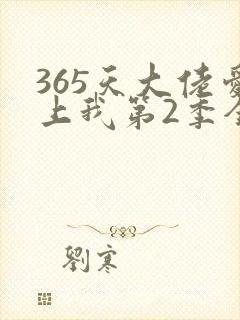 365天大佬爱
上我第2季全
劉寒